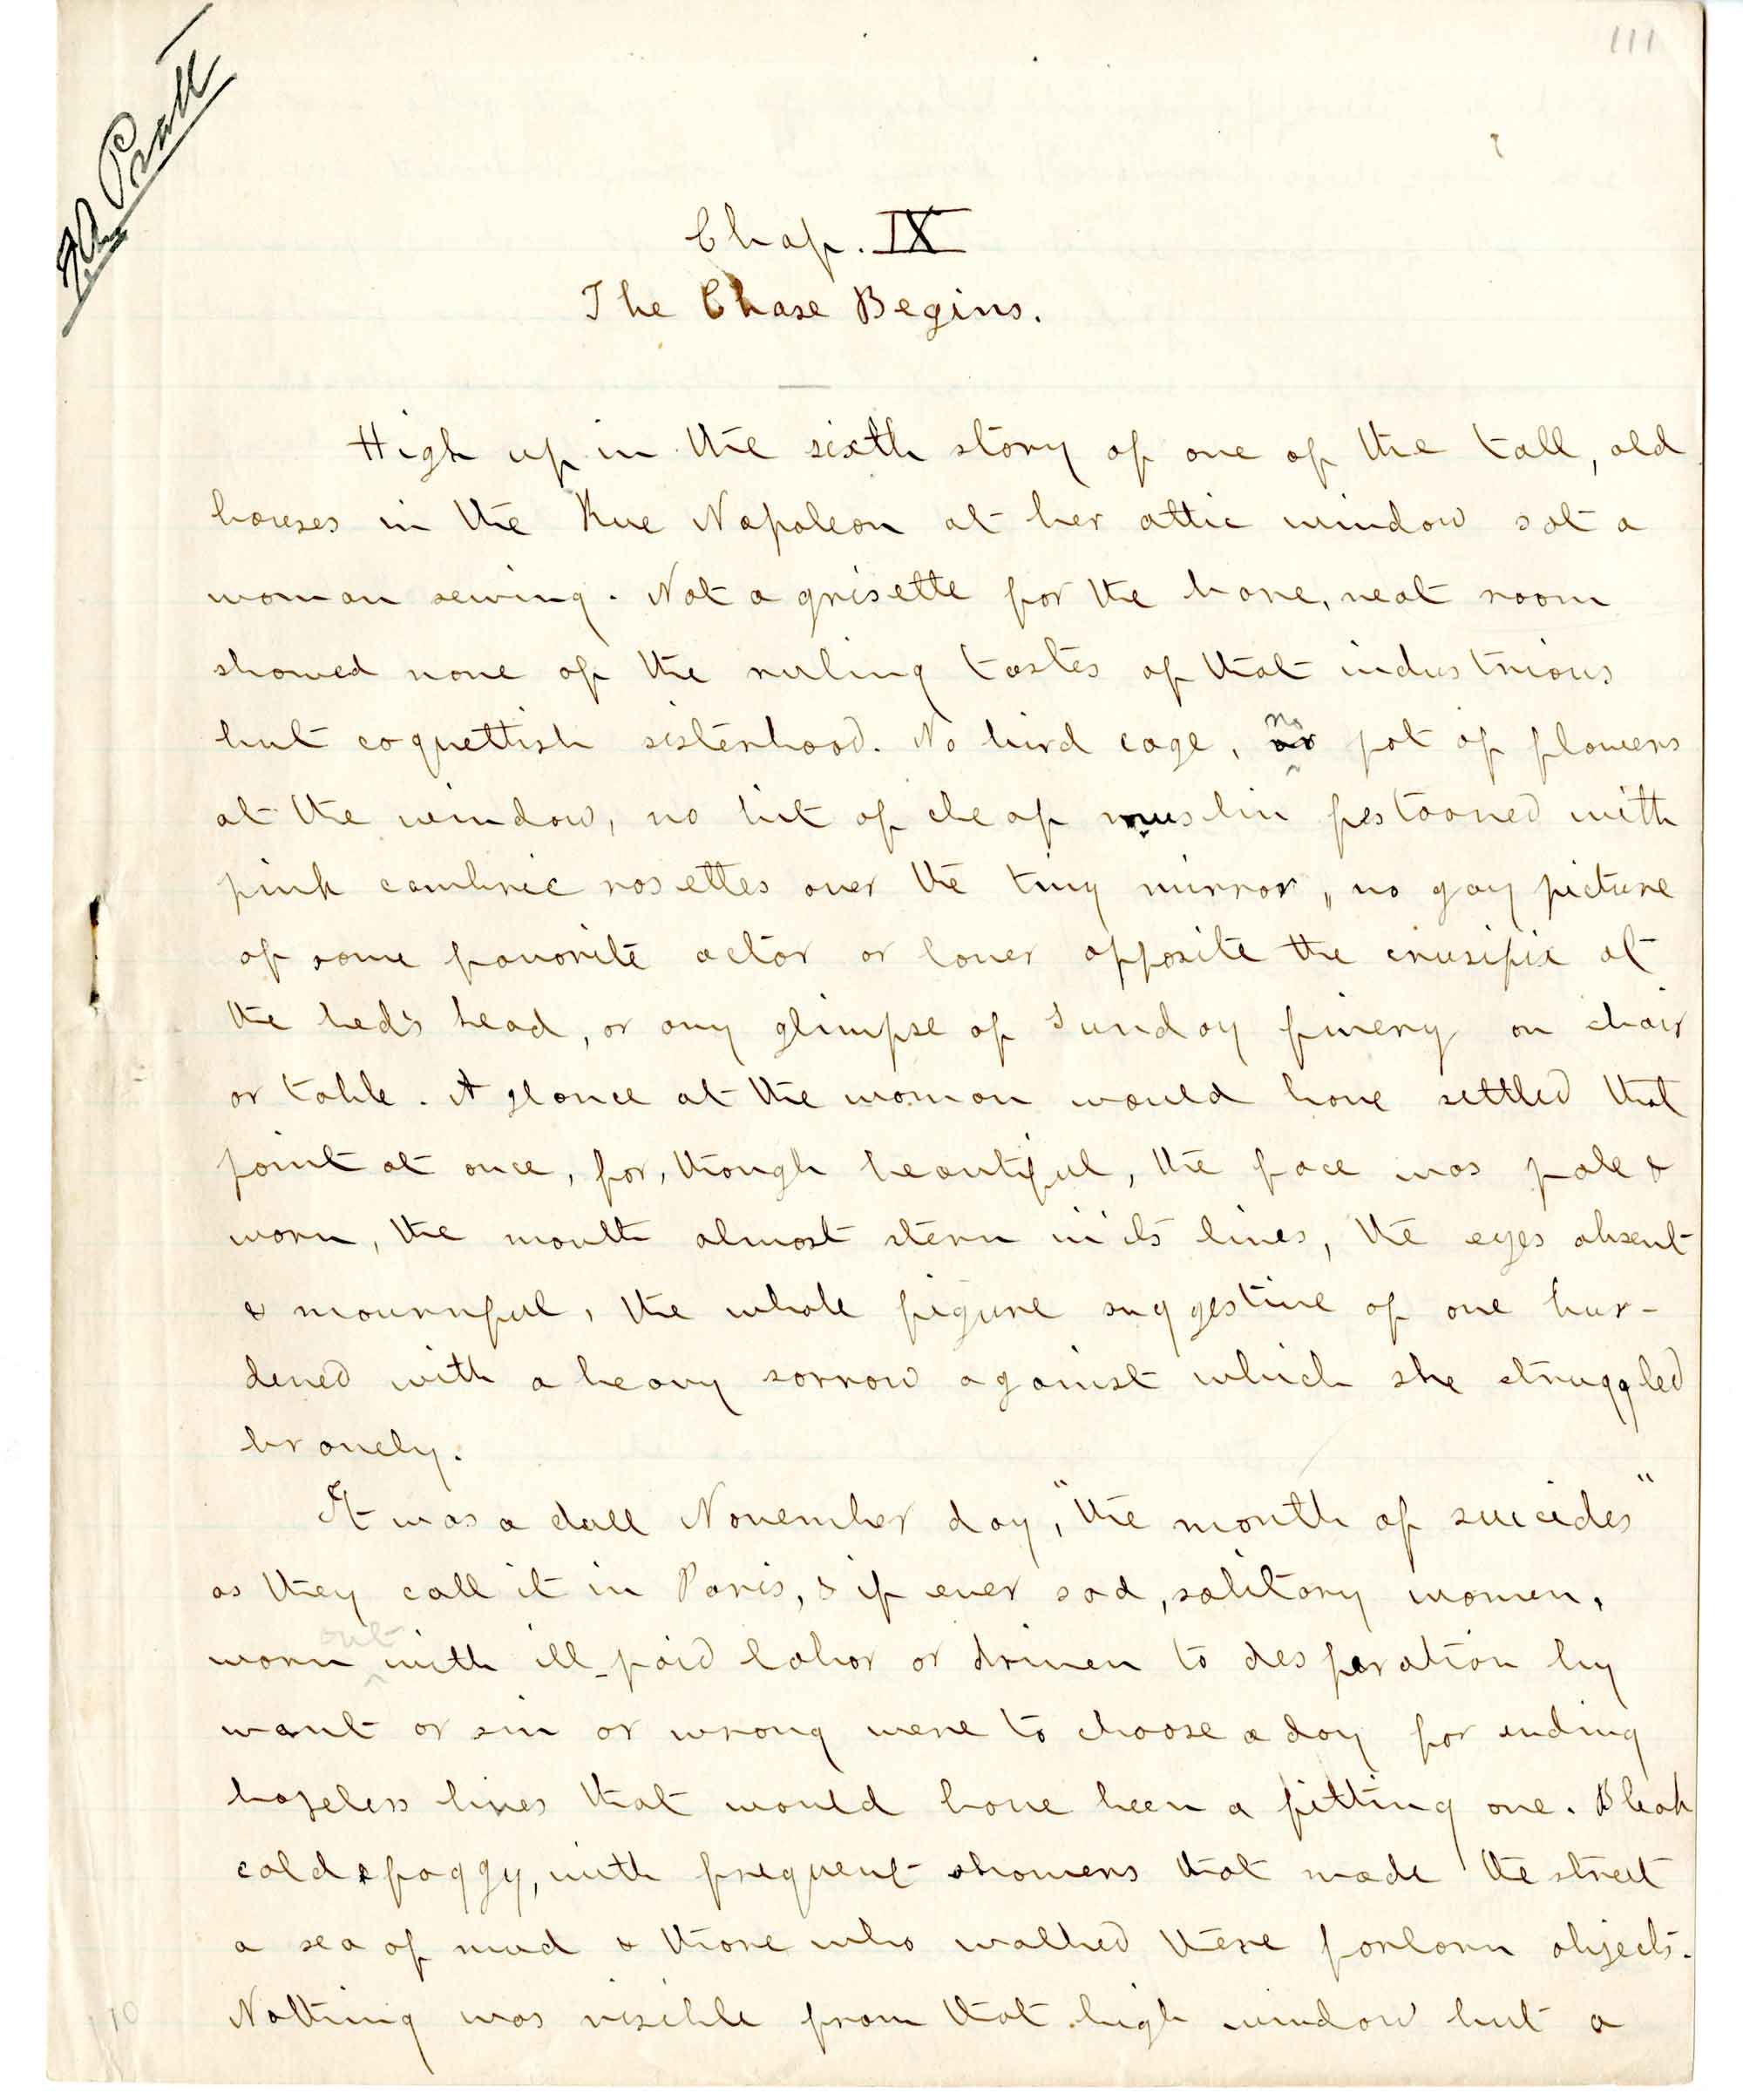 111
Pratt
Chap. IX
The Chase Begins.
High up in the sixth story of one of the tall, old
houses in the Rue Napoleon at her attic window sat a
woman sewing. Not a grisette for the bare, neat room
showed none of the ruling tastes of that industrious
but coquettish sisterhood. No bird cage, no or pot of flowers
at the window, no bit of cheap muslin festooned with
pink cambric rosettes over the tiny mirror, no gay picture
of some favorite actor or lover opposite the crusifix at
the bed's head, or any glimpse of Sunday finery on chair
or table. A glance at the woman would have settled that
point at once, for, though beautiful, the face was pale &
worn, the mouth almost stern in its lines, the eyes absent
& mournful, the whole figure suggestive of one bur-
dened with a heavy sorrow against which she struggled
bravely.
It was a dull November day, "the month of suicides"
as they call it in Paris, & if ever sad, solitary women,
worn out with ill-paid labor or driven to desparation by
want or sin or wrong were to choose a day for ending
hopeless lives that would have been a fitting one. Bleak
cold & foggy, with frequent showers that made the street
a sea of mud & those who walked there forlorn objects.
Nothing was visible from that high window but a